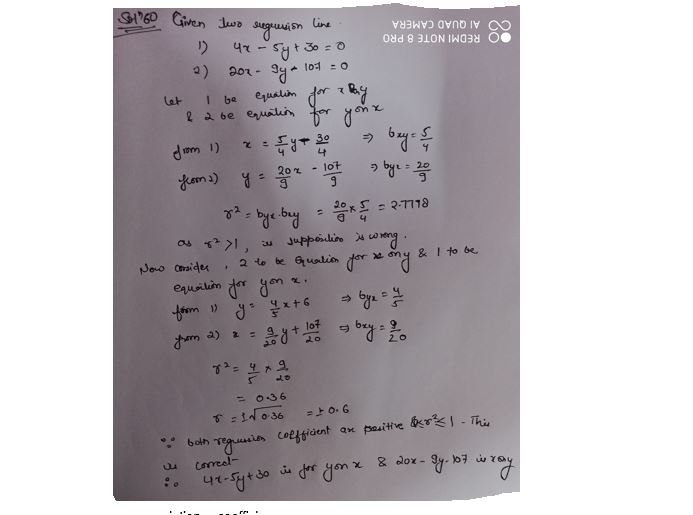 Soln 60 Given two regression line.
1) 4x - 5y + 30 = 0
2) 20x - 9y - 107 = 0
Let 1 be equation for x on y
& 2 be equation for y on x
from 1) x = 5/4 y - 30/4 ⇒ bxy = 5/4
from 2) y = 20/9 x - 107/9 ⇒ byx = 20/9
r² = byx.bxy = 20/9 x 5/4 = 2.7798
as r² >1, us supposition is wrong.
Now consider, 2 to be equation for x on y & 1 to be
equation for y on x.
from 1) y = 4/5 x + 6 ⇒ byx = 4/5
from 2) x = 9/20 y + 107/20 ⇒ bxy = 9/20
r² = 4/5 x 9/20
= 0.36
r = ±√0.36 = ± 0.6
∵ both regression coefficient are positive & r² ≤ 1 - This
is correct
∴ 4x-5y+30 is for y on x & 20x - 9y-107 is x on y
REDMI NOTE 8 PRO
AI QUAD CAMERA